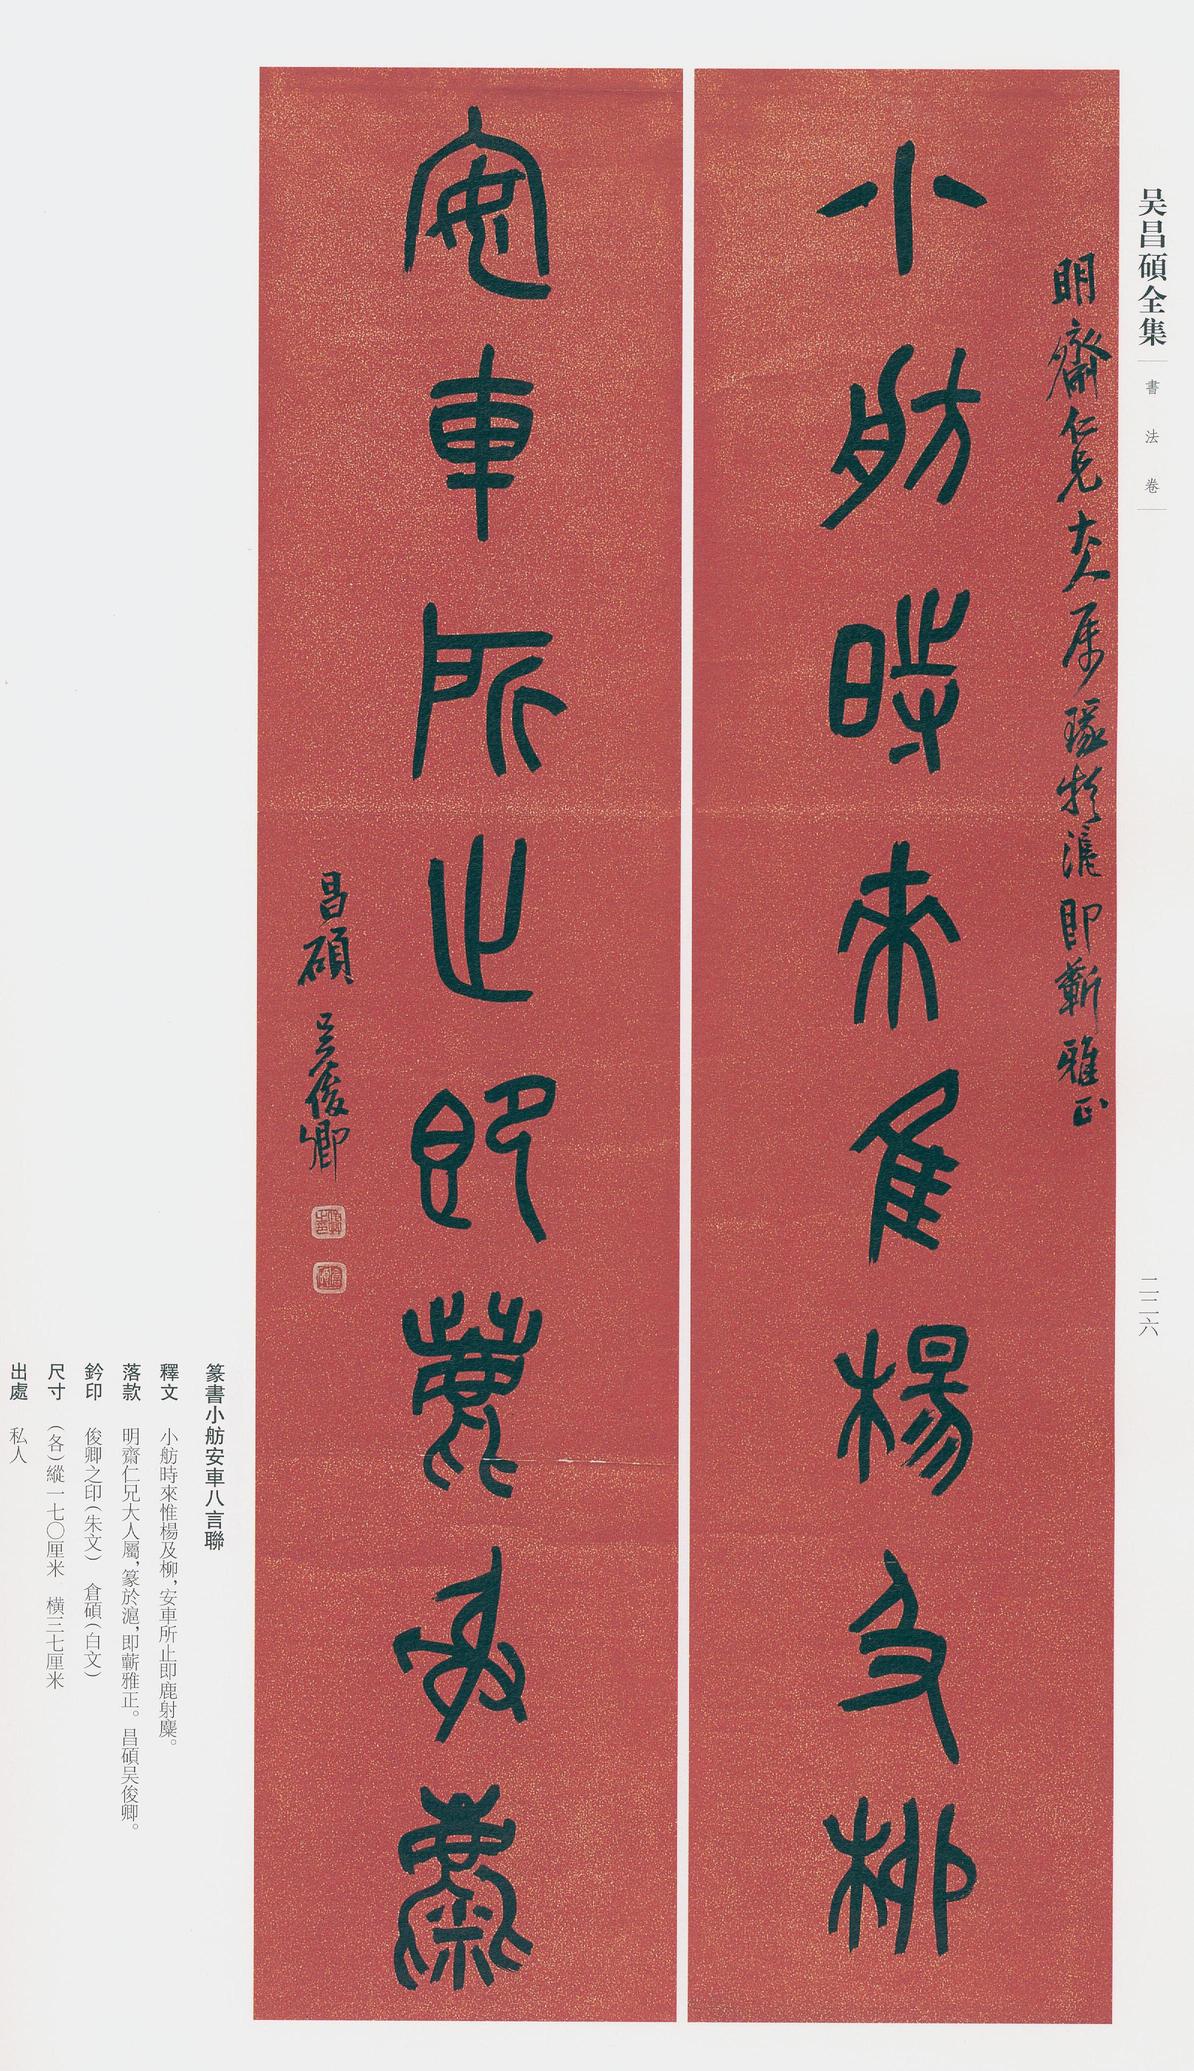 吴昌碩全集
書法卷
二二六
明齋仁兄大人属瑑於滬即蘄雅正
小舫時來隹楊及柳
安車所止即鹿射麋
昌碩吴俊卿
篆書小舫安車八言聯
釋文 小舫時來惟楊及柳，安車所止即鹿射麋。
落款 明齋仁兄大人屬，篆於滬，即蘄雅正。昌碩吴俊卿。
鈐印 俊卿之印（朱文） 倉碩（白文）
尺寸 （各）縱一七〇厘米 橫三七厘米
出處 私人